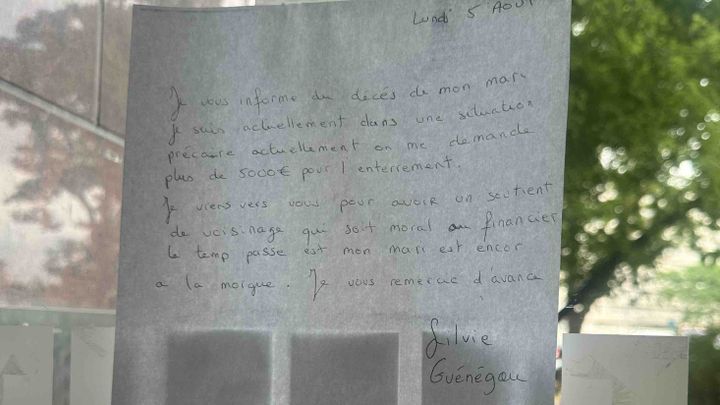 Lundi 5 Août
Je vous informe du décés de mon mari
je suis actuellement dans une situation
précaire actuellement on me demande
plus de 5000€ pour l'enterrement.
Je viens vers vous pour avoir un soutient
de voisinage qui soit moral ou financier
le temp passe est mon mari est encor
a la morgue. Je vous remercie d'avance
Silvie
Guénégou